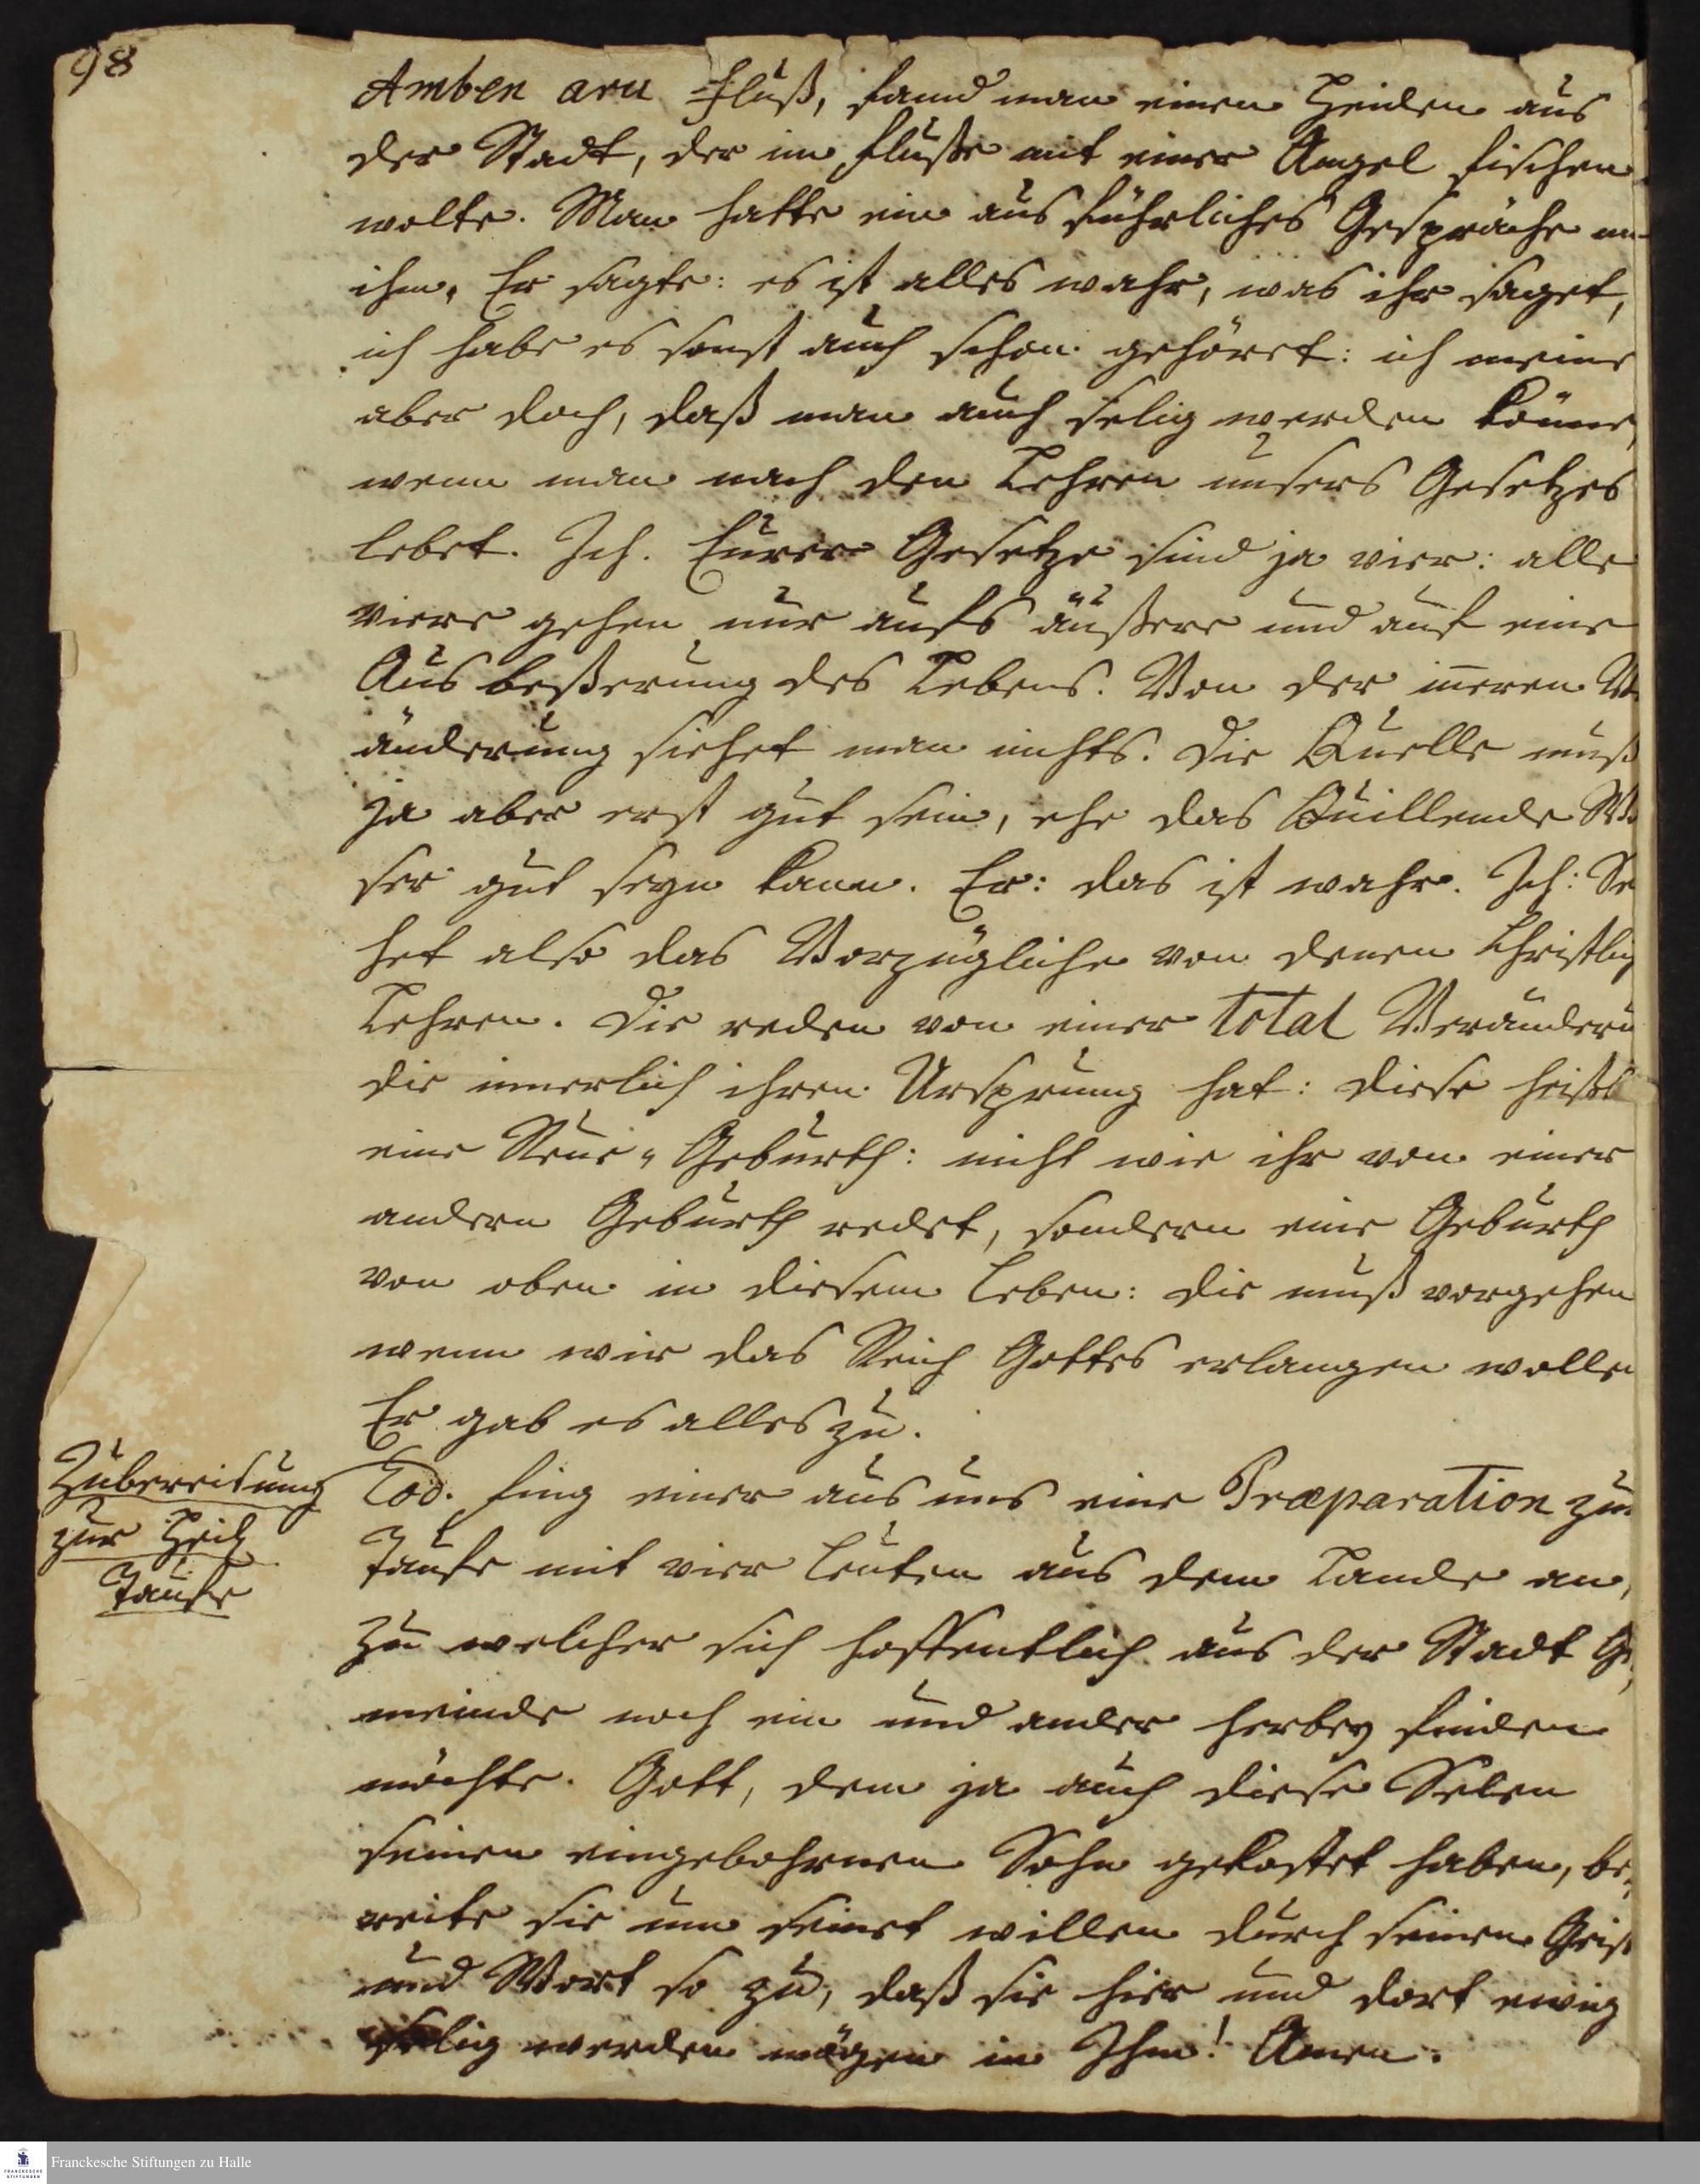 98
Amben aru Fluß, fand man einen Heiden aus
der Stadt, der im Fluße mit einer Angel fischen
wolte. Man hatte ein ausführliches Gespräche m
ihm. Er sagte: es ist alles wahr, was ihr saget,
ich habe es sonst auch schon gehöret: ich meine
aber doch, daß man auch selig werden könne,
wenn man nach den Lehren unsers Gesetzes
lebet. Ich. Eurer Gesetze sind ja vier: alle
viere gehen nur aufs äußere und auf eine
Ausbeßerung des Lebens. Von der inneren V
änderung siehet man nichts. Die Quelle muß
ja aber erst gut sein, ehe das Quillende Wa
ser gut seyn kann. Er: das ist wahr. Ich: Se
het also das Vorzügliche von denen Christlich
Lehren. Die reden von einer total Veränderu
die innerlich ihren Ursprung hat: diese heißt
eine Neue-Geburth: nicht wie ihr von einer
andern Geburth redet, sondern eine Geburth
von oben in diesem Leben: die muß vorgehen
wenn wir das Reich Gottes erlangen wollen
Er gab es alles zu.
Zubereitung
zur Heil
Taufe
Eod. fing einer aus uns eine Præparation zur
Taufe mit vier Leuten aus dem Lande an,
zu welcher sich hoffentlich aus der Stadt Ge,
meinde noch ein und ander herbey finden
möchte. Gott, dem ja auch diese Selen
seinen eingebohrnen Sohn gekostet haben, be,
reite sie um seinet willen durch seinen Geist
und Wort so zu, daß sie hier und dort ewig
selig werden mögen in Ihm! Amen.
Franckesche Stiftungen zu Halle
FRANCKESCHE
STIFTUNGEN